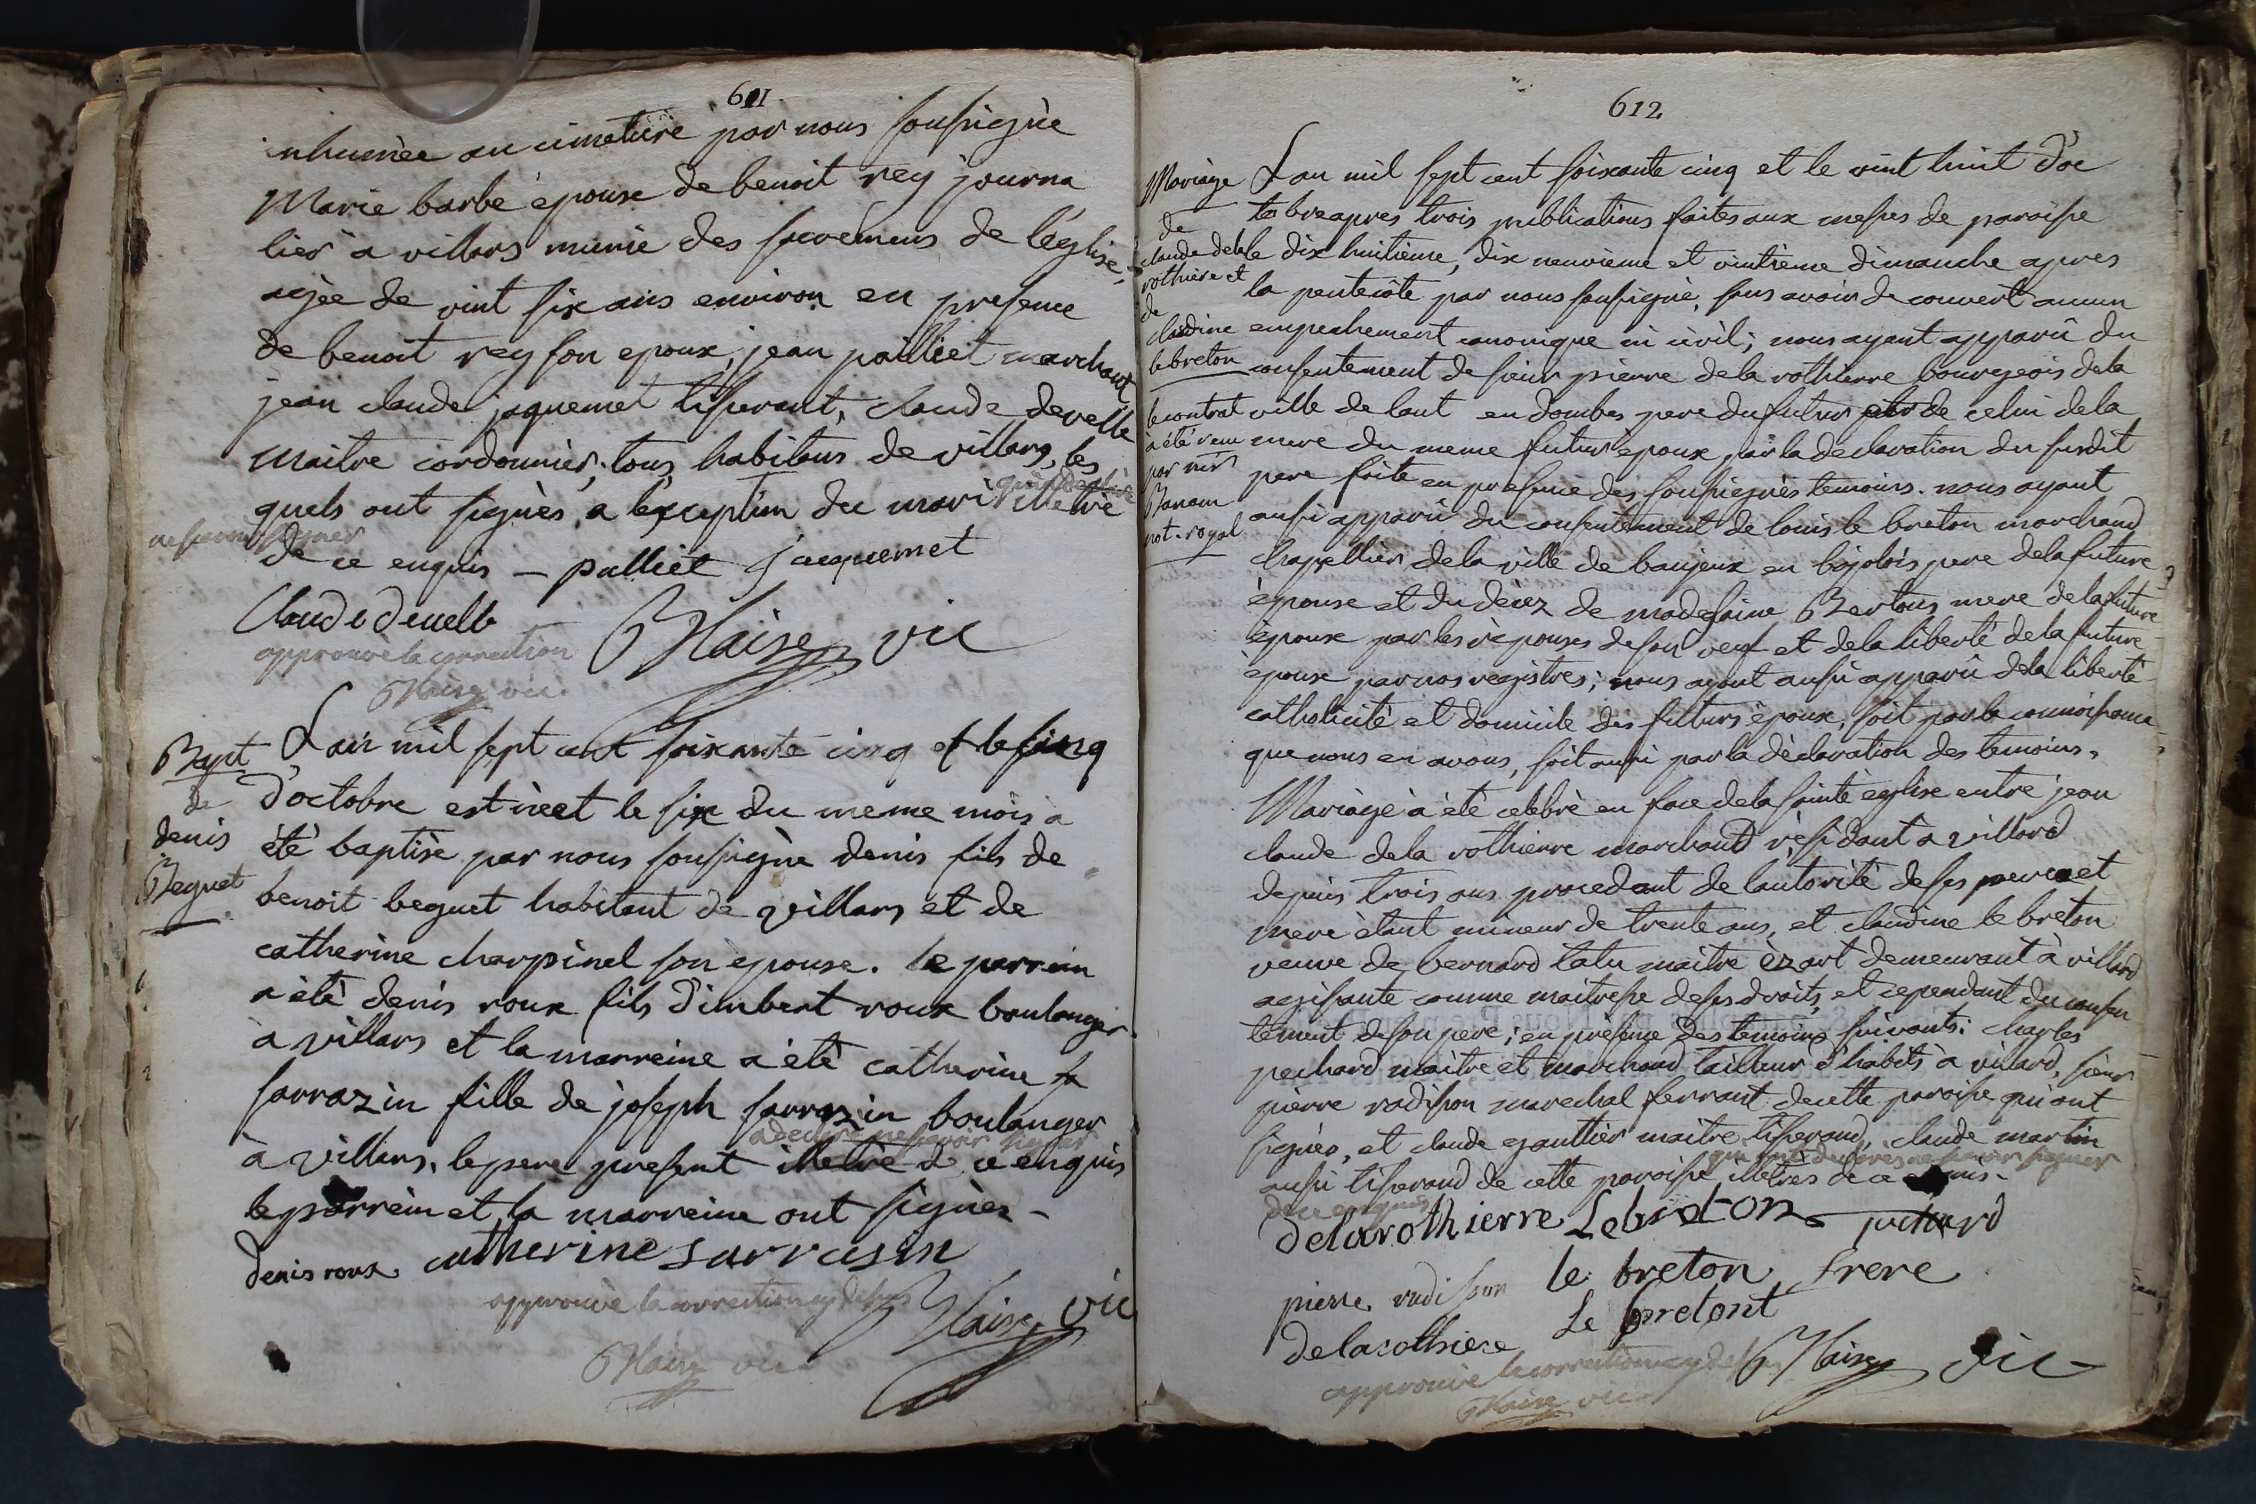 611
inhumèe au cimetiere par nous soussignè
Marie barbe èpouse de benoit rey journa
lier à villars munie des sacrémens de l'église,
agèe de vint six ans environ en presence
de benoit rey son epoux, jean pailliet marchant
jean claude jaquemet tisserant, claude develle
maitre cordonnier, tous habitans de villars, les
quels ont signès, a l'exception du mari illetré
qui a declaré
ne savoir signer
de ce enquis — palliet jacquemet
Claude deuelle
Blaise vic
approuvè la correction
Blaise vic
Bapt
de
denis
Beguet
L'an mil sept cent soixante cinq et le cinq
d'octobre est nè et le six du meme mois à
étè baptisè par nous soussignè denis fils de
benoit beguet habitant de villars et de
catherine charpinel son èpouse. le parrein
a étè denis roux fils d'imbert roux boulanger
à villars et la marreine a étè catherine sa
sarrazin fille de joseph sarrazin boulanger
a declaré ne savoir signer
à villars, le pere present illetré de ce enquis
le parrein et la marreine ont signès —
denis roux catherine sarrasin
approuvè la correction cy dessus
Blaise vic
Blaise vic
612
Mariage
de
claude dela
rothiere et
de
claudine
lebreton
le contrat
à été reçu
par mr
Banam
not. royal
L'an mil sept cent soixante cinq et le vint huit d'oc
tobre apres trois publications faites aux messes de paroisse
le dix huitieme, dix neuvieme et vintieme dimanche apres
la pentecôte par nous soussignè, sans avoir decouvert aucun
empechement canonique ni civil; nous ayant apparû du
consentement de sieur pierre dela rothierre bourgeois dela
ville de lant en dombes pere du futur et de celui dela
mere du meme futur èpoux par la declaration du susdit
pere faite en presence des soussignès temoins. nous ayant
aussi apparû du consentement de louis le breton marchand
chapellier dela ville de baujeux en bojolois pere dela future
èpouse et du décez de madelaine Bertous mere dela future
èpouse par les réponses de son veuf et dela liberté dela future
èpouse par nos registres; nous ayant aussi apparû dela liberté
catholicité et domicile des futurs èpoux, soit par la connoissance
que nous en avons, soit aussi par la déclaration des temoins,
Mariage à étè celebrè en face dela sainte èglise entre jean
claude dela rothierre marchand résidant a villard
depuis trois ans procedant de l'autorité de ses pere et
mere ètant mineur de trente ans, et claudine le breton
veuve de bernard latu maitre èz art demeurant à villard
agissante comme maitresse de ses droits, et cependant du consen
tement de son pere; en présence des temoins suivants: charles
pechard maitre et marchand tailleur d'habits à villard, sieur
pierre radisson marechal ferrant de cette paroisse qui ont
signès, et claude gauttier maitre tisserand, claude martin
qui ont declarès ne savoir signer
aussi tisserand de cette paroisse illetrès de ce enquis.
de ce enquis
delarothierre Lebreton pechard
pierre radisson le breton frere
delarothiere Le bretont
approuvè la correction cy dessus Blaise vic
Blaise vic